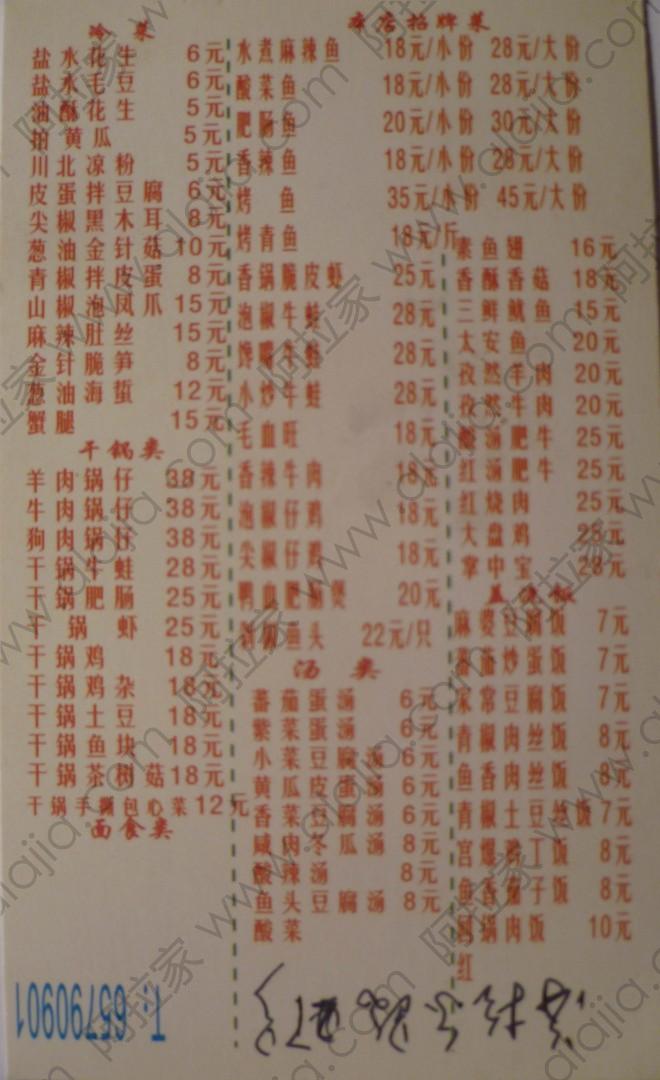 冷菜
盐水花生 6元
盐水毛豆 6元
油酥花生 5元
拍黄瓜 5元
川北凉粉 5元
皮蛋拌豆腐 6元
尖椒黑木耳 8元
葱油金针菇 10元
青椒拌皮蛋 8元
山椒泡凤爪 15元
麻辣肚丝 15元
金针脆笋 8元
葱油海蜇 12元
蟹腿 15元
干锅类
羊肉锅仔 38元
牛肉锅仔 38元
狗肉锅仔 38元
干锅牛蛙 28元
干锅肥肠 25元
干锅虾 25元
干锅鸡 18元
干锅鸡杂 18元
干锅土豆 18元
干锅鱼块 18元
干锅茶树菇 18元
干锅手撕包心菜 12元
面食类
T:65790901
店招牌菜
水煮麻辣鱼 18元/小份 28元/大份
酸菜鱼 18元/小份 28元/大份
肥肠鱼 20元/小份 30元/大份
香辣鱼 18元/小份 28元/大份
烤鱼 35元/小份 45元/大份
烤青鱼 18元/斤
香锅脆皮虾 25元
泡椒牛蛙 28元
馋嘴牛蛙 28元
小炒牛蛙 28元
毛血旺 18元
香辣牛肉 18元
泡椒仔鸡 18元
尖椒仔鸡 18元
鸭血肥肠煲 20元
鱼头 22元/只
汤类
蕃茄蛋汤 6元
紫菜蛋汤 6元
小菜豆腐汤 6元
黄瓜皮蛋汤 6元
香菜豆腐汤 6元
咸肉冬瓜汤 8元
酸辣汤 8元
鱼头豆腐汤 8元
酸菜
素鱼翅 16元
香酥香菇 18元
三鲜鱿鱼 15元
太安鱼 20元
孜然羊肉 20元
孜然牛肉 20元
酸汤肥牛 25元
红汤肥牛 25元
红烧肉 25元
大盘鸡 28元
掌中宝 28元
盖浇饭
麻婆豆腐饭 7元
蕃茄炒蛋饭 7元
家常豆腐饭 7元
青椒肉丝饭 8元
鱼香肉丝饭 8元
青椒土豆丝饭 7元
宫爆鸡丁饭 8元
鱼香茄子饭 8元
回锅肉饭 10元
红
阿拉家 www.alajia.com